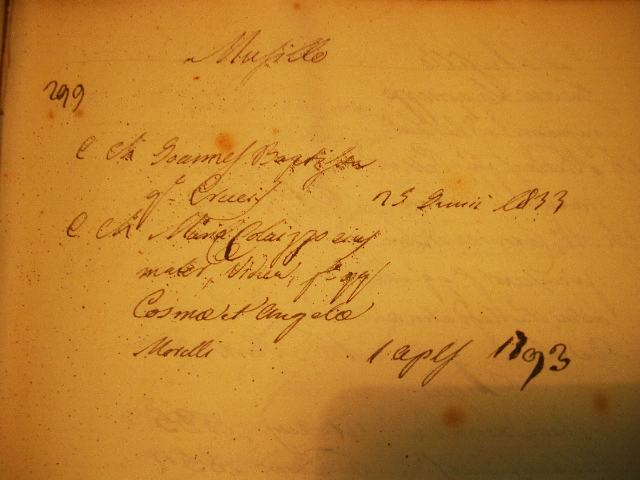 Musillo
299
C Ch Joannes Baptista
qm Crucis 25 Junii 1833
C Ch Maria Colaizzo eius
mater, vidua, fa qq
Cosmæ et Angelæ
Morelli 1 aplis 1893